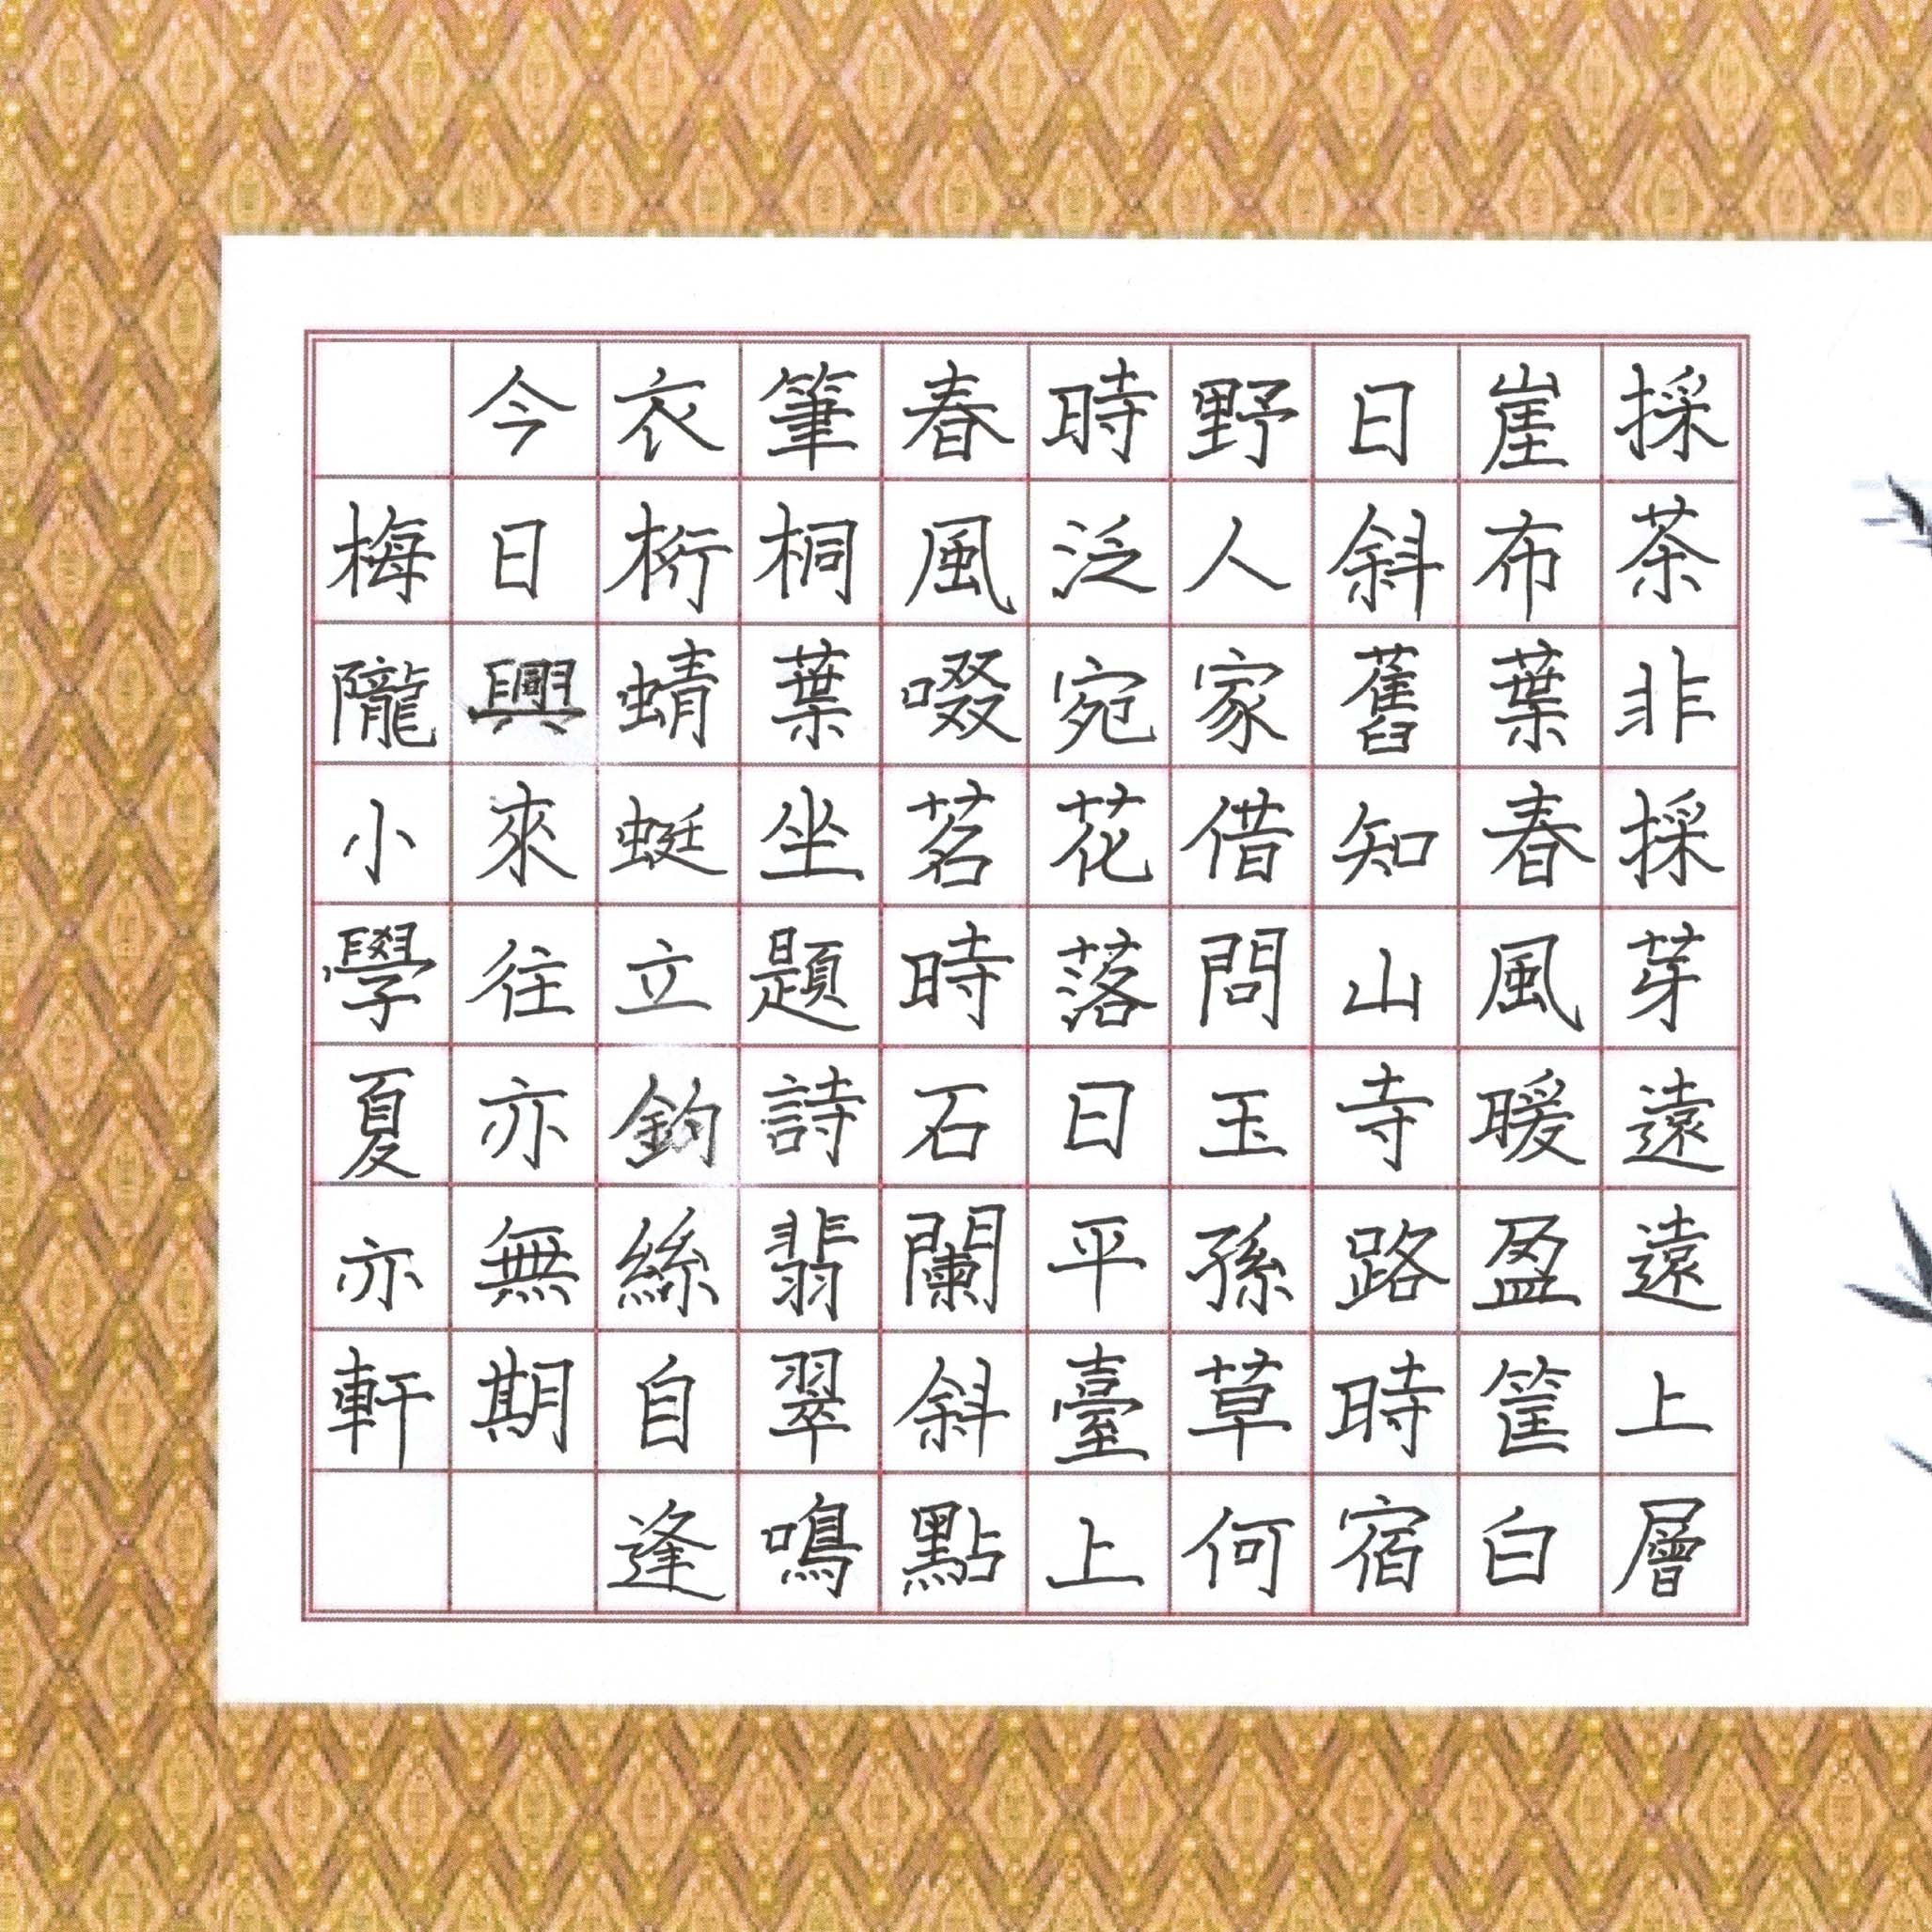 採茶非採芽遠遠上層
崖布葉春風暖盈筐白
日斜舊知山寺路時宿
野人家借問玉孫草何
時泛宛花落日平臺上
春風啜茗時石闌斜點
筆桐葉坐題詩翡翠鳴
衣桁蜻蜓立鈎絲自逢
今日興來往亦無期
梅隴小學夏亦軒